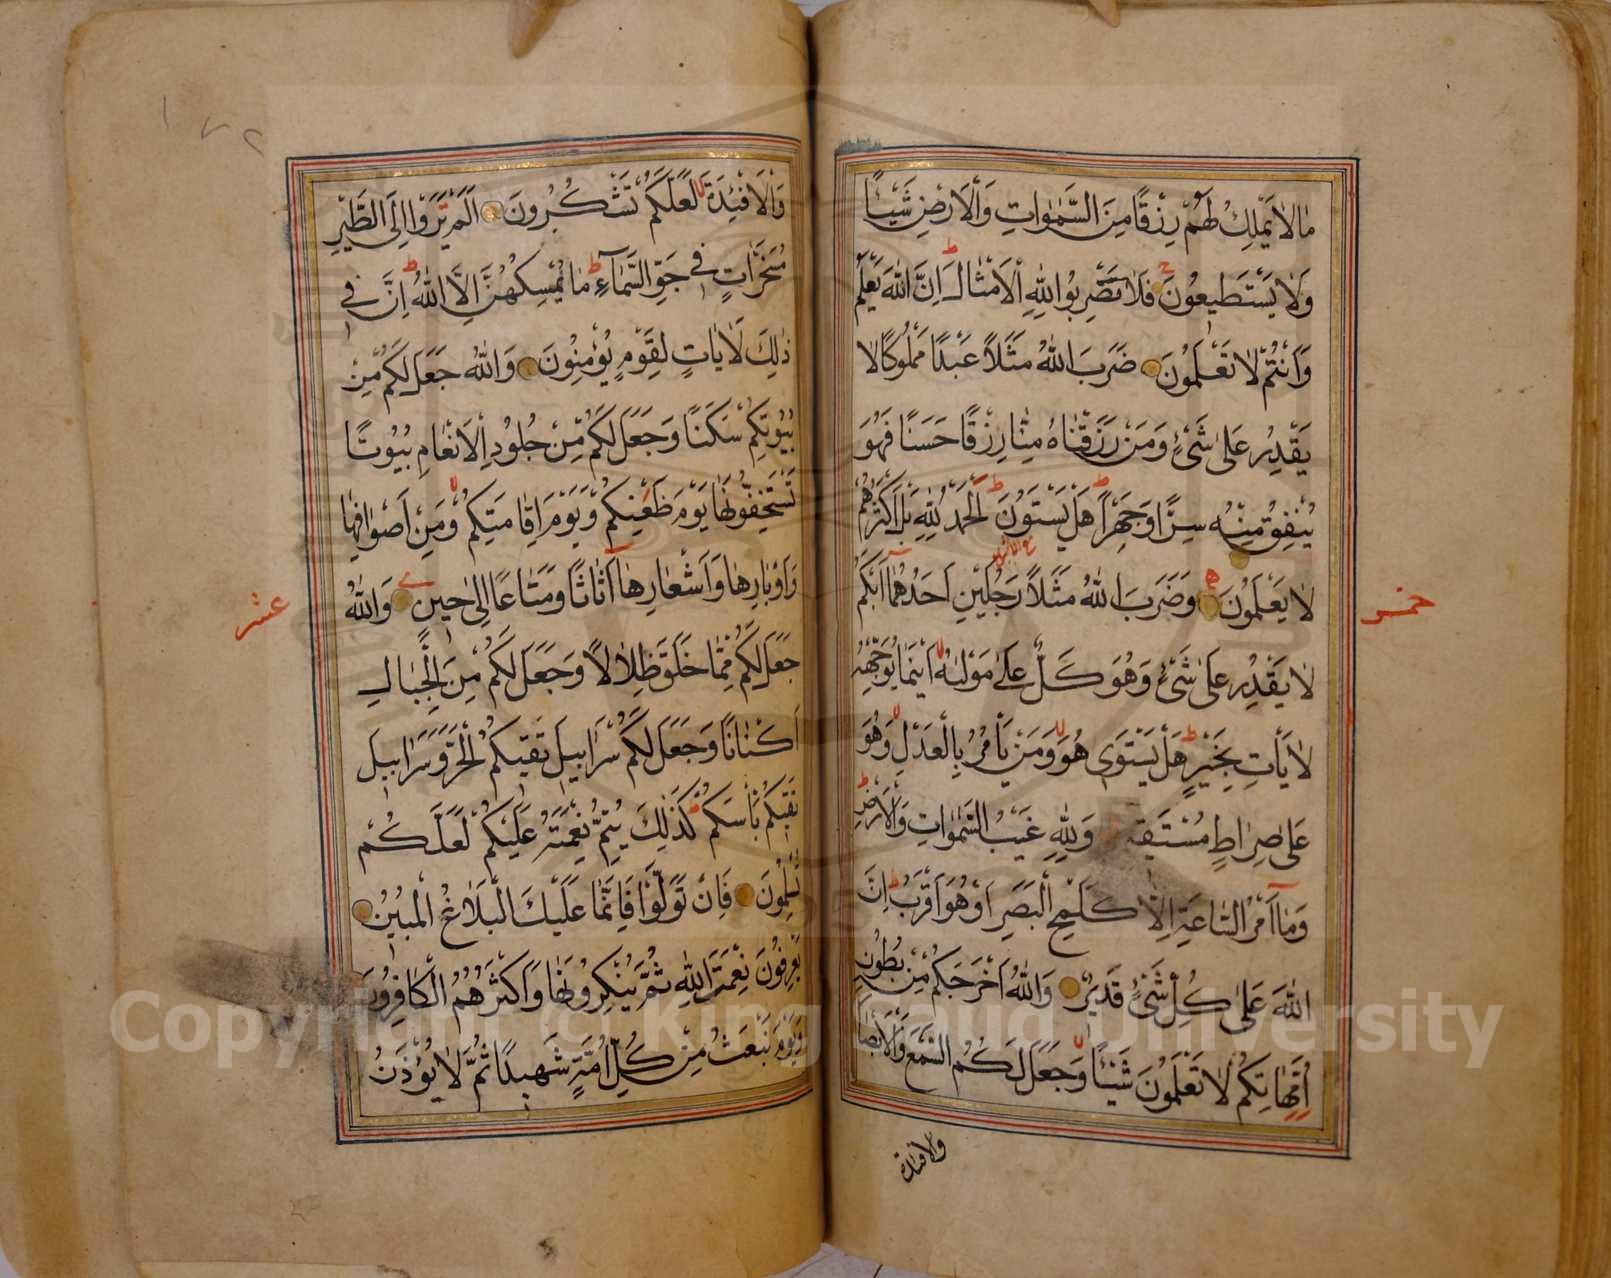 مَا لَا يَمْلِكُ لَهُمْ رِزْقًا مِنَ السَّمٰوَاتِ وَالْاَرْضِ شَيْـًٔا
وَلَا يَسْتَطِيعُونَ فَلَا تَضْرِبُوا لِلّٰهِ الْاَمْثَالَ اِنَّ اللّٰهَ يَعْلَمُ
وَاَنْتُمْ لَا تَعْلَمُونَ ضَرَبَ اللّٰهُ مَثَلًا عَبْدًا مَمْلُوكًا لَا
يَقْدِرُ عَلٰى شَیْءٍ وَمَنْ رَزَقْنَاهُ مِنَّا رِزْقًا حَسَنًا فَهُوَ
يُنْفِقُ مِنْهُ سِرًّا وَجَهْرًا هَلْ يَسْتَوُنَ اَلْحَمْدُ لِلّٰهِ بَلْ اَكْثَرُهُمْ
لَا يَعْلَمُونَ وَضَرَبَ اللّٰهُ مَثَلًا رَجُلَيْنِ اَحَدُهُمَا اَبْكَمُ
خمس
لَا يَقْدِرُ عَلٰى شَیْءٍ وَهُوَ كَلٌّ عَلٰى مَوْلٰيهُ اَيْنَمَا يُوَجِّهْهُ
لَا يَأْتِ بِخَيْرٍ هَلْ يَسْتَوِى هُوَ وَمَنْ يَأْمُرُ بِالْعَدْلِ وَهُوَ
عَلٰى صِرَاطٍ مُسْتَقِيمٍ وَلِلّٰهِ غَيْبُ السَّمٰوَاتِ وَالْاَرْضِ
وَمَا اَمْرُ السَّاعَةِ اِلَّا كَلَمْحِ الْبَصَرِ اَوْ هُوَ اَقْرَبُ اِنَّ
اللّٰهَ عَلٰى كُلِّ شَیْءٍ قَدِيرٌ وَاللّٰهُ اَخْرَجَكُمْ مِنْ بُطُونِ
اُمَّهَاتِكُمْ لَا تَعْلَمُونَ شَيْـًٔا وَجَعَلَ لَكُمُ السَّمْعَ وَالْاَبْصَارَ
والافئدة
١٧٢
وَالْاَفْئِدَةَ لَعَلَّكُمْ تَشْكُرُونَ اَلَمْ يَرَوْا اِلَى الطَّيْرِ
مُسَخَّرَاتٍ فِى جَوِّ السَّمَآءِ مَا يُمْسِكُهُنَّ اِلَّا اللّٰهُ اِنَّ فِى
ذٰلِكَ لَاٰيَاتٍ لِقَوْمٍ يُؤْمِنُونَ وَاللّٰهُ جَعَلَ لَكُمْ مِنْ
بُيُوتِكُمْ سَكَنًا وَجَعَلَ لَكُمْ مِنْ جُلُودِ الْاَنْعَامِ بُيُوتًا
تَسْتَخِفُّونَهَا يَوْمَ ظَعْنِكُمْ وَيَوْمَ اِقَامَتِكُمْ وَمِنْ اَصْوَافِهَا
وَاَوْبَارِهَا وَاَشْعَارِهَا اَثَاثًا وَمَتَاعًا اِلٰى حِينٍ وَاللّٰهُ
عشر
جَعَلَ لَكُمْ مِمَّا خَلَقَ ظِلَالًا وَجَعَلَ لَكُمْ مِنَ الْجِبَالِ
اَكْنَانًا وَجَعَلَ لَكُمْ سَرَابِيلَ تَقِيكُمُ الْحَرَّ وَسَرَابِيلَ
تَقِيكُمْ بَأْسَكُمْ كَذٰلِكَ يُتِمُّ نِعْمَتَهُ عَلَيْكُمْ لَعَلَّكُمْ
تُسْلِمُونَ فَاِنْ تَوَلَّوْا فَاِنَّمَا عَلَيْكَ الْبَلَاغُ الْمُبِينُ
يَعْرِفُونَ نِعْمَتَ اللّٰهِ ثُمَّ يُنْكِرُونَهَا وَاَكْثَرُهُمُ الْكَافِرُونَ
وَيَوْمَ نَبْعَثُ مِنْ كُلِّ اُمَّةٍ شَهِيدًا ثُمَّ لَا يُؤْذَنُ
Copyright © King Saud University